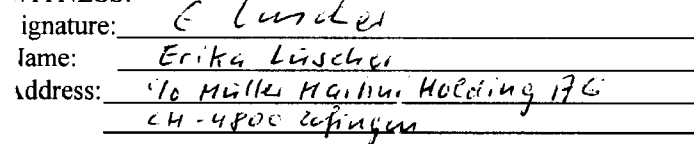 WITNESS:
ignature: E Lüscher
lame: Erika Lüscher
ddress: c/o Müller Martini Holding AG
CH-4800 Zofingen